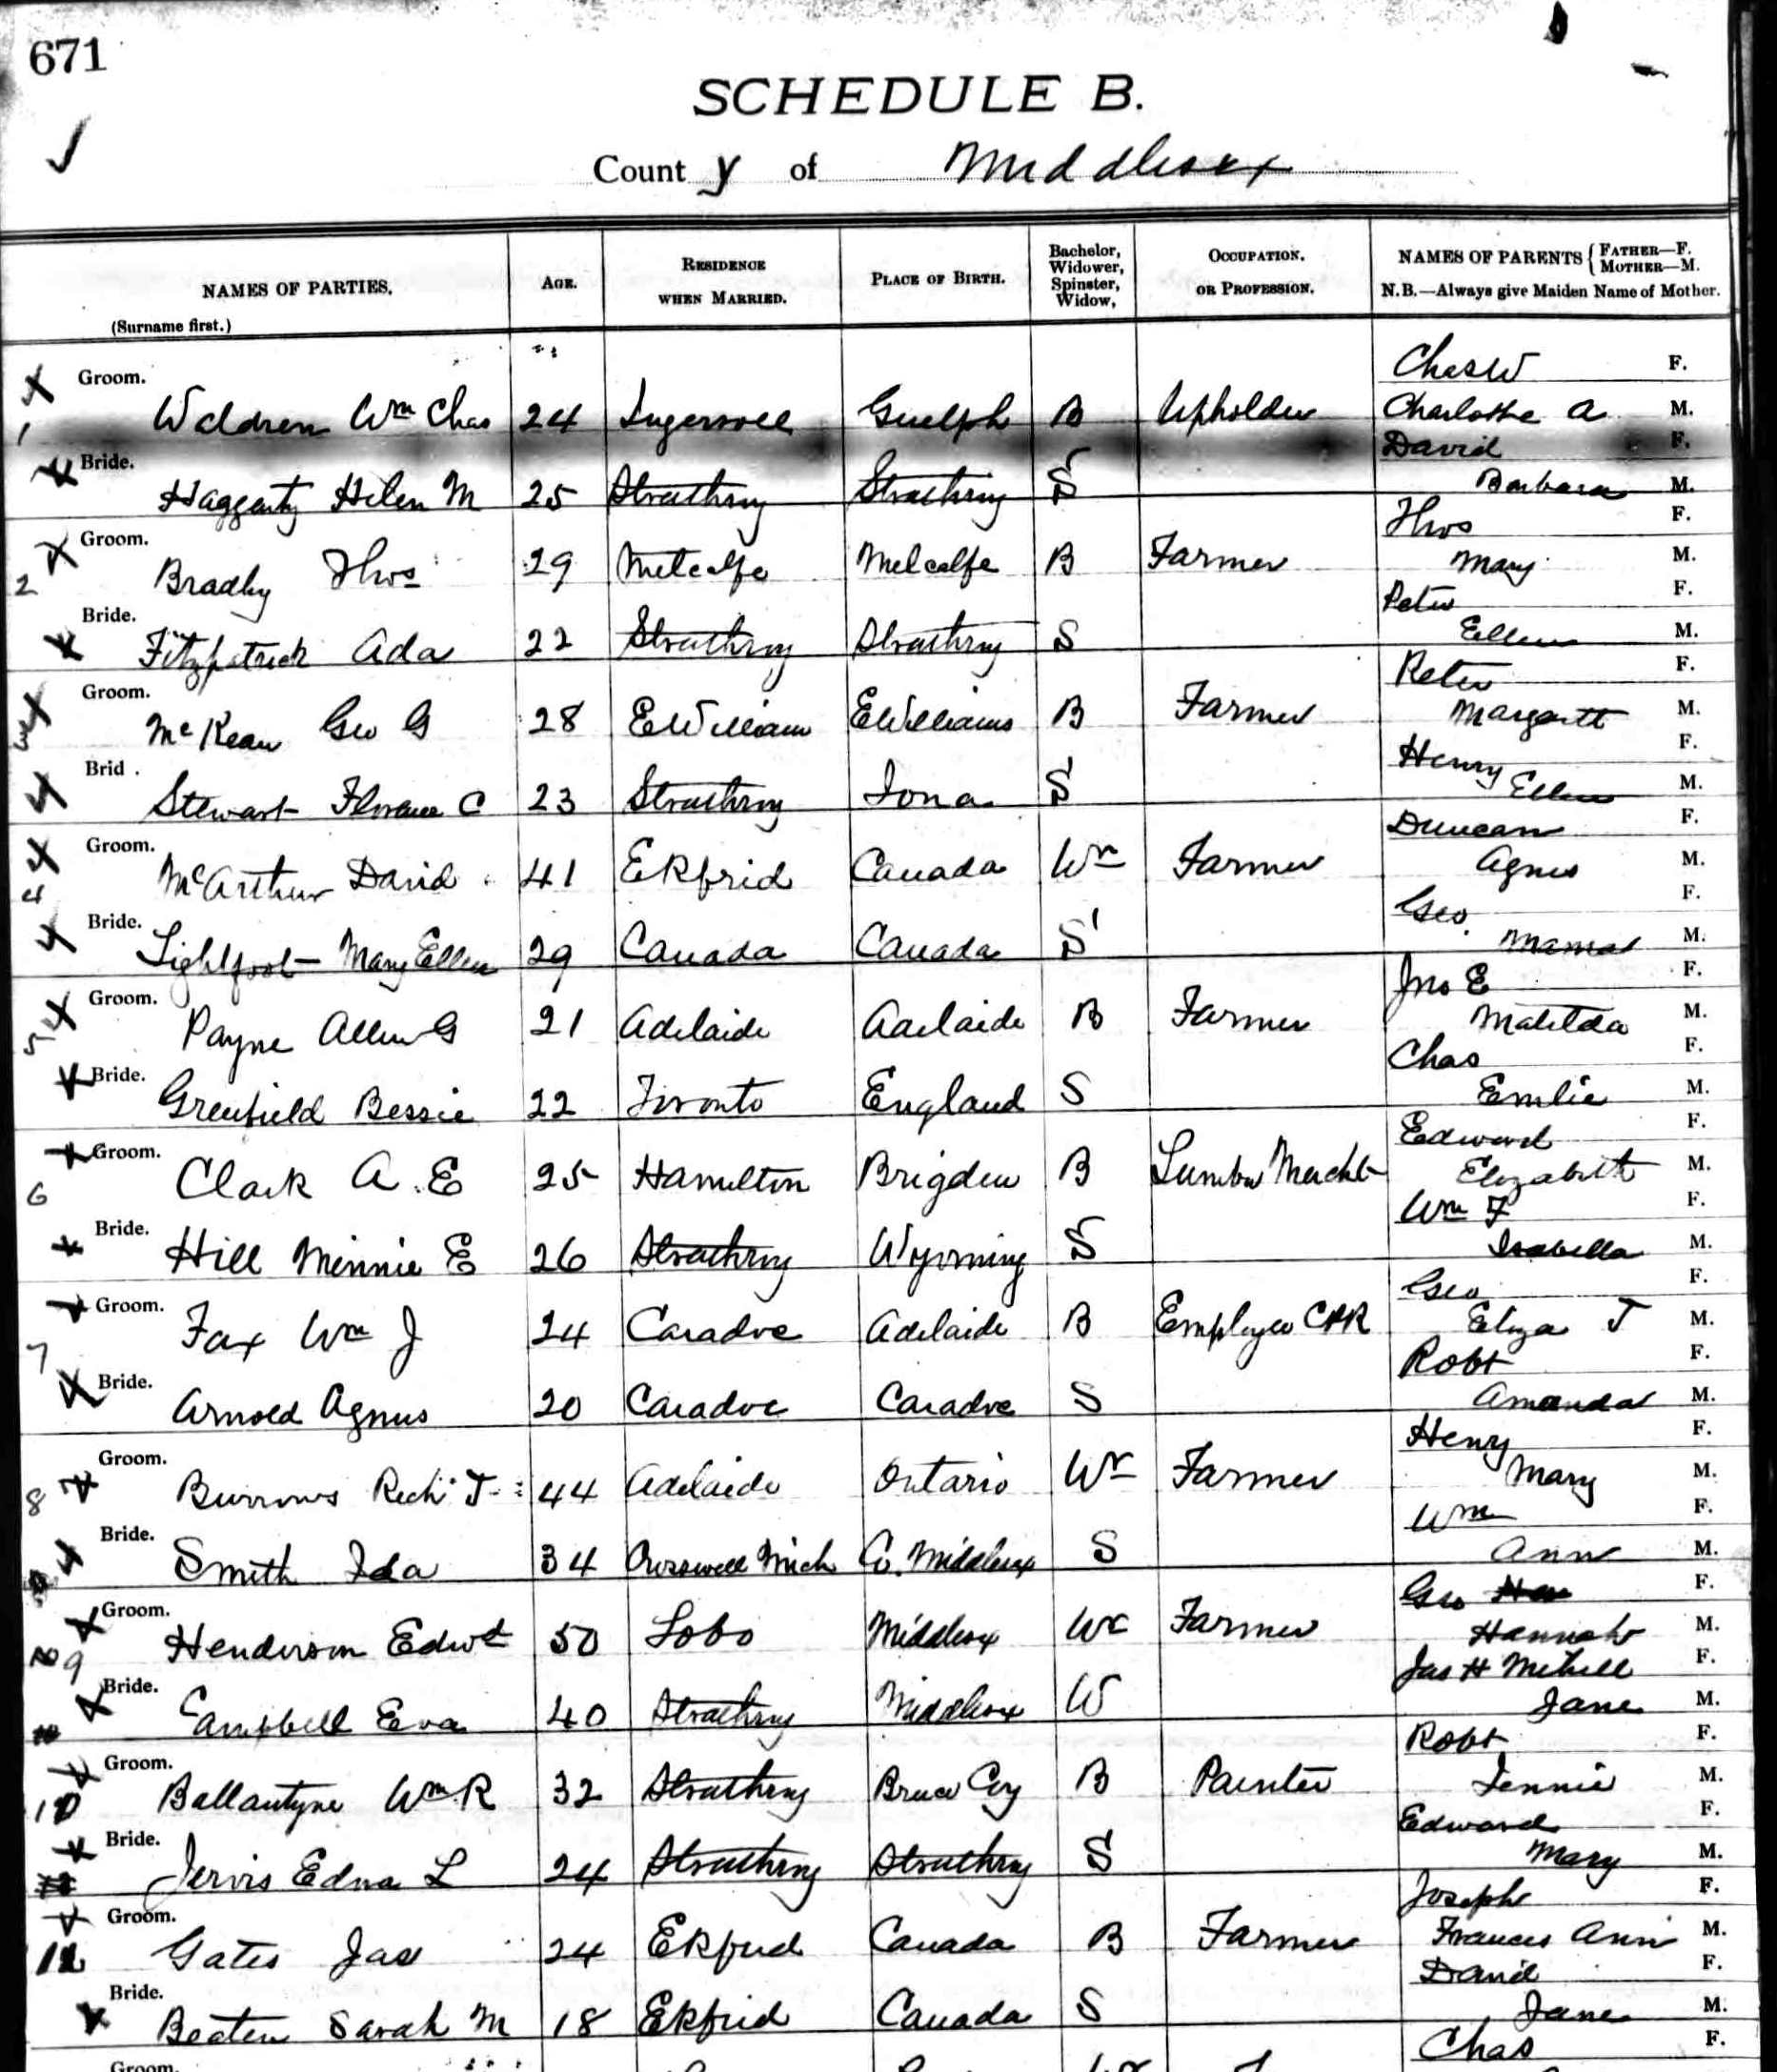 671
SCHEDULE B.
County of Middlesex
NAMES OF PARTIES. (Surname first.) AGE. RESIDENCE WHEN MARRIED. PLACE OF BIRTH. Bachelor, Widower, Spinster, Widow, OCCUPATION. OR PROFESSION. NAMES OF PARENTS { FATHER—F. MOTHER—M. N.B.—Always give Maiden Name of Mother.
Chas W F.
1 Groom. Waldren Wm Chas 24 Ingersoll Guelph B Upholder Charlotte A M.
David F.
Bride. Haggarty Helen M 25 Strathroy Strathroy S Barbara M.
Thos F.
2 Groom. Bradley Thos 29 Metcalfe Metcalfe B Farmer Mary M.
Peter F.
Bride. Fitzpatrick Ada 22 Strathroy Strathroy S Ellen M.
Peter F.
3 Groom. McKean Geo G 28 E William E Williams B Farmer Margarett M.
Henry F.
Brid . Stewart Florance C 23 Strathroy Iona S Ellen M.
Duncan F.
4 Groom. McArthur David 41 Ekfrid Canada Wr Farmer Agnes M.
Geo. F.
Bride. Lightfoot Mary Ellen 29 Canada Canada S M.
Jno E F.
5 Groom. Payne Allen G 21 Adelaide Adelaide B Farmer Matilda M.
Chas F.
Bride. Greenfield Bessie 22 Toronto England S Emlie M.
Edward F.
6 Groom. Clark A. E 25 Hamilton Brigden B Lumber Mercht Elizabeth M.
Wm F F.
Bride. Hill Minnie E 26 Strathroy Wyoming S Isabella M.
Geo F.
7 Groom. Fax Wm J 24 Caradoc Adelaide B Employee CPR Eliza J M.
Robt F.
Bride. Arnold Agnus 20 Caradoc Caradoc S Amanda M.
Henry F.
8 Groom. Burrows Rich J 44 Adelaide Ontario Wr Farmer Mary M.
Wm F.
Bride. Smith Ida 34 Crosswell Mich Co. Middlesex S Ann M.
Geo F.
9 Groom. Henderson Edwd 50 Lobo Middlesex Wr Farmer Hannah M.
Jas H Mihell F.
Bride. Campbell Eva 40 Strathroy Middlesex W Jane M.
Robt F.
10 Groom. Ballantyne Wm R 32 Strathroy Bruce Coy B Painter Jennie M.
Edward F.
Bride. Jervis Edna L 24 Strathroy Strathroy S Mary M.
Joseph F.
Groom. Gates Jas 24 Ekfrid Canada B Farmer Frances Ann M.
David F.
Bride. Beaten Sarah M 18 Ekfrid Canada S Jane M.
Chas F.
Groom.